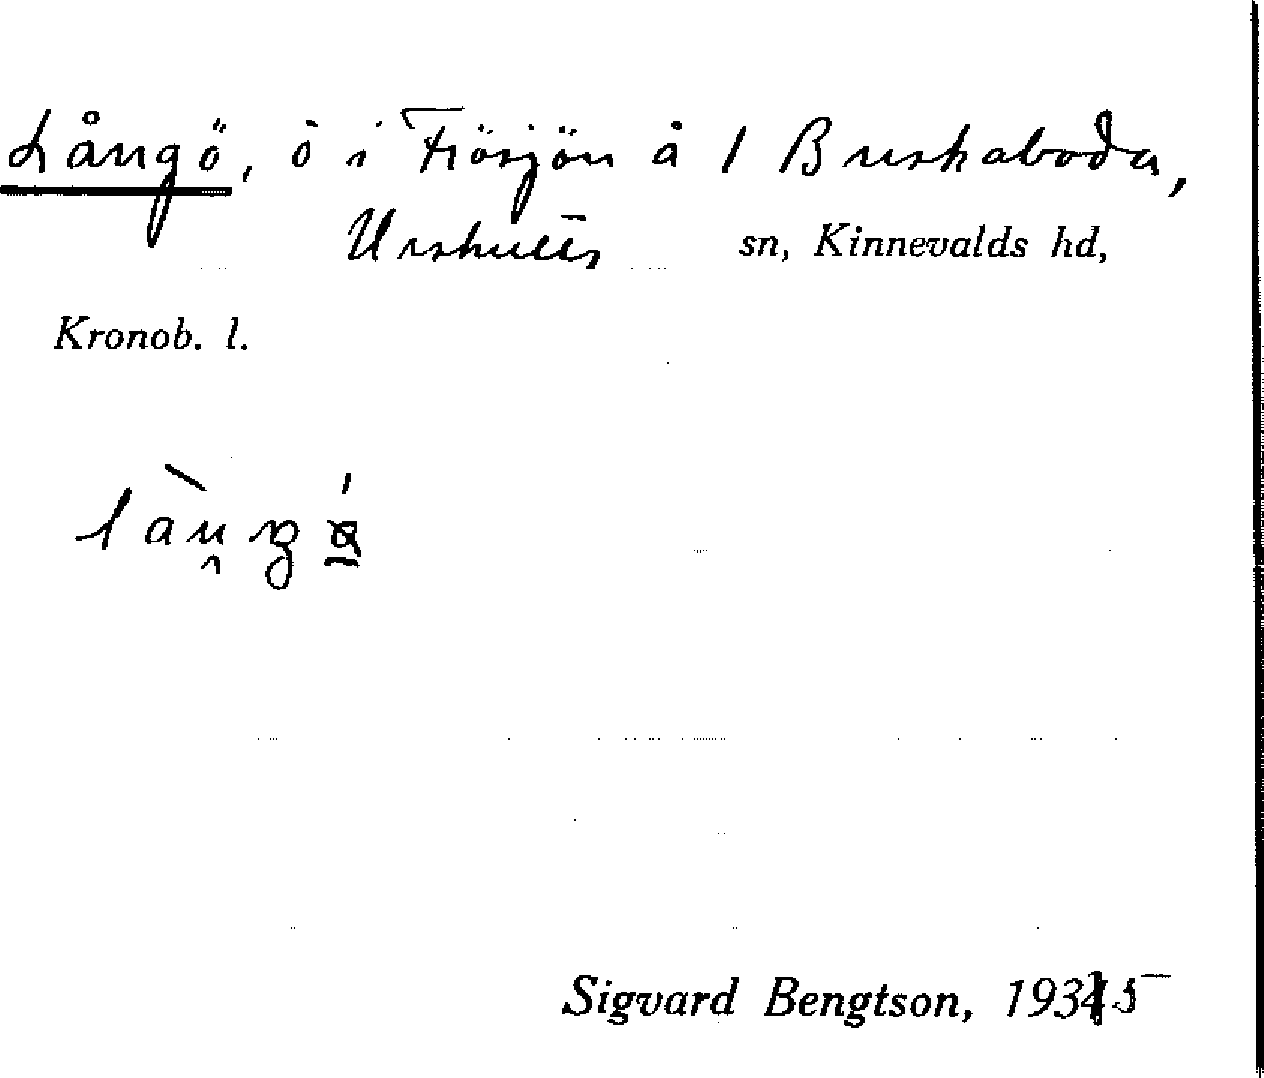 Långö, ö i Fiösjön å 1 Buskaboda,
Urshults sn, Kinnevalds hd,
Kronob. l.
Sigvard Bengtson, 1935